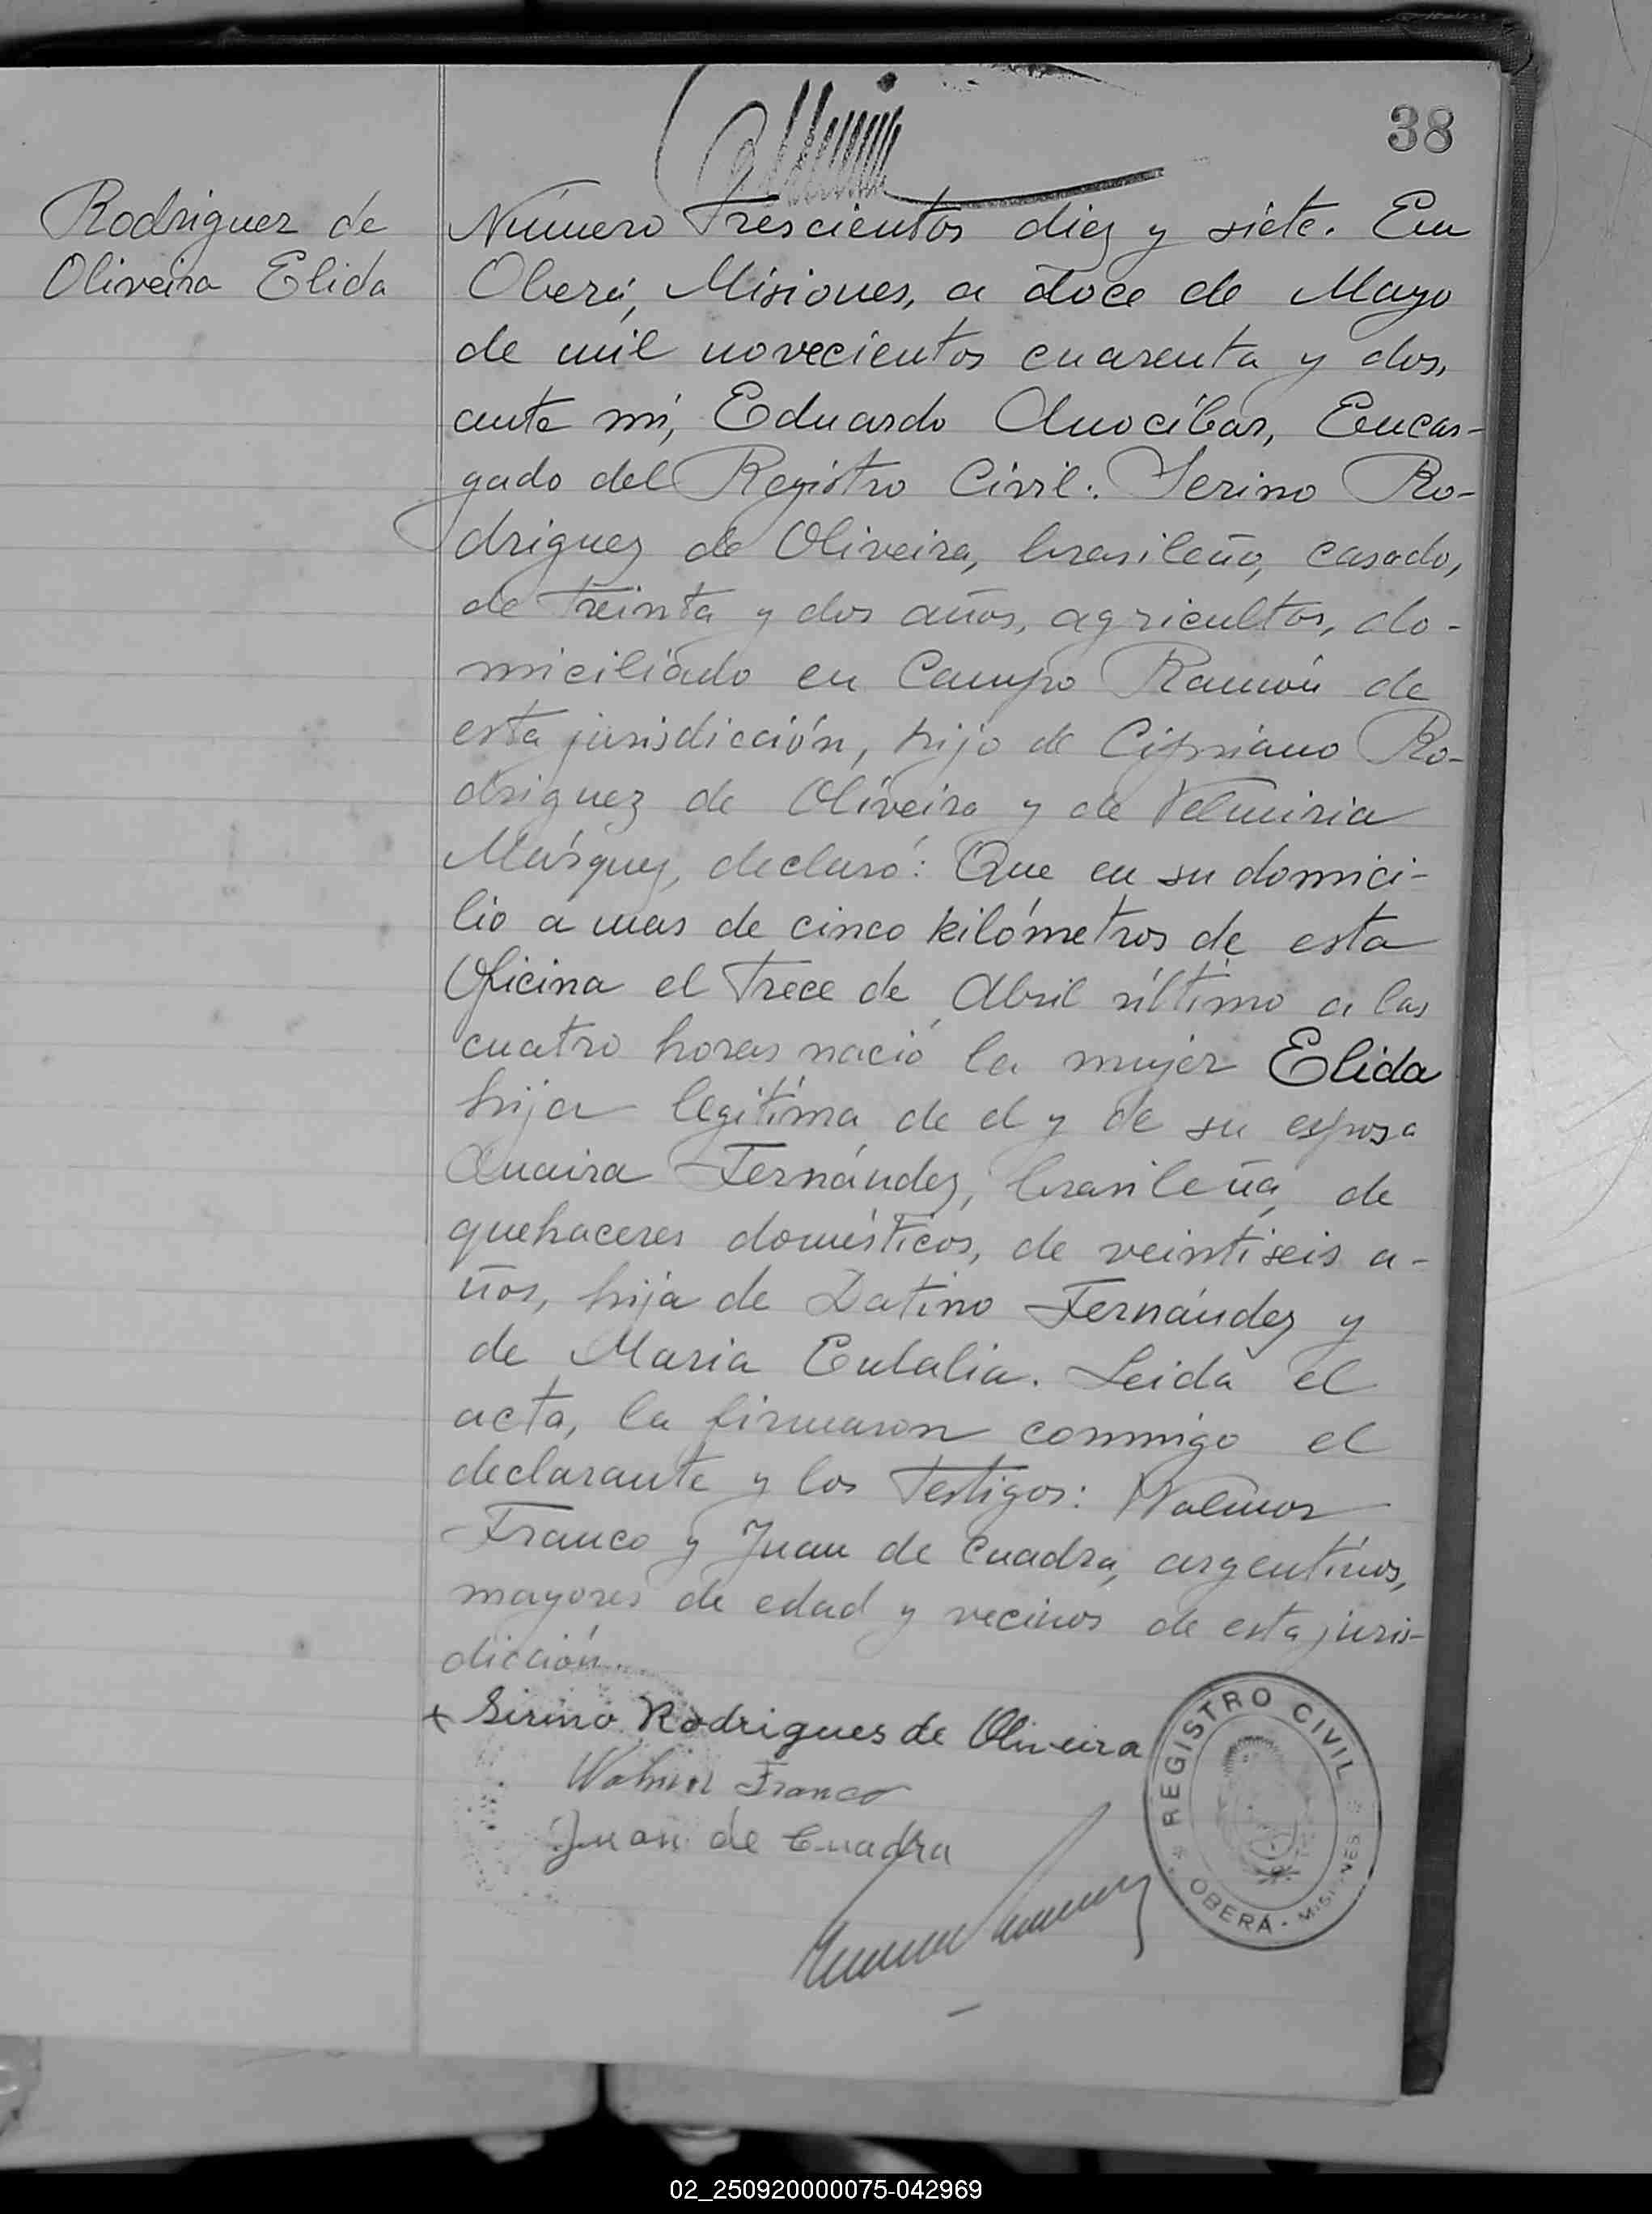 38
Rodriguez de
Oliveira Elida
Número Trescientos diez y siete. En
Oberá, Misiones, a doce de Mayo
de mil novecientos cuarenta y dos,
ante mí, Eduardo Anocíbar, Encar-
gado del Registro Civil: Serino Ro-
driguez de Oliveira, brasileño, casado,
de treinta y dos años, agricultor, do-
miciliado en Campo Ramón de
esta jurisdicción, hijo de Cipriano Ro-
driguez de Oliveira y de Velmiria
Márquez, declaró: Que en su domici-
lio a mas de cinco kilómetros de esta
Oficina el trece de Abril último a las
cuatro horas nació la mujer Elida
hija legítima de el y de su esposa
Anaira Fernández, brasileña, de
quehaceres domésticos, de veintiseis a-
ños, hija de Datino Fernández y
de Maria Eulalia. Leida el
acta, la firmaron conmigo el
declarante y los testigos: Walmor
Franco y Juan de Cuadra, argentinos,
mayores de edad y vecinos de esta juris-
dicción.
x Sirino Rodrigues de Oliveira
Walmor Franco
Juan de Cuadra
REGISTRO CIVIL
OBERÁ - MISIONES
02_250920000075-042969